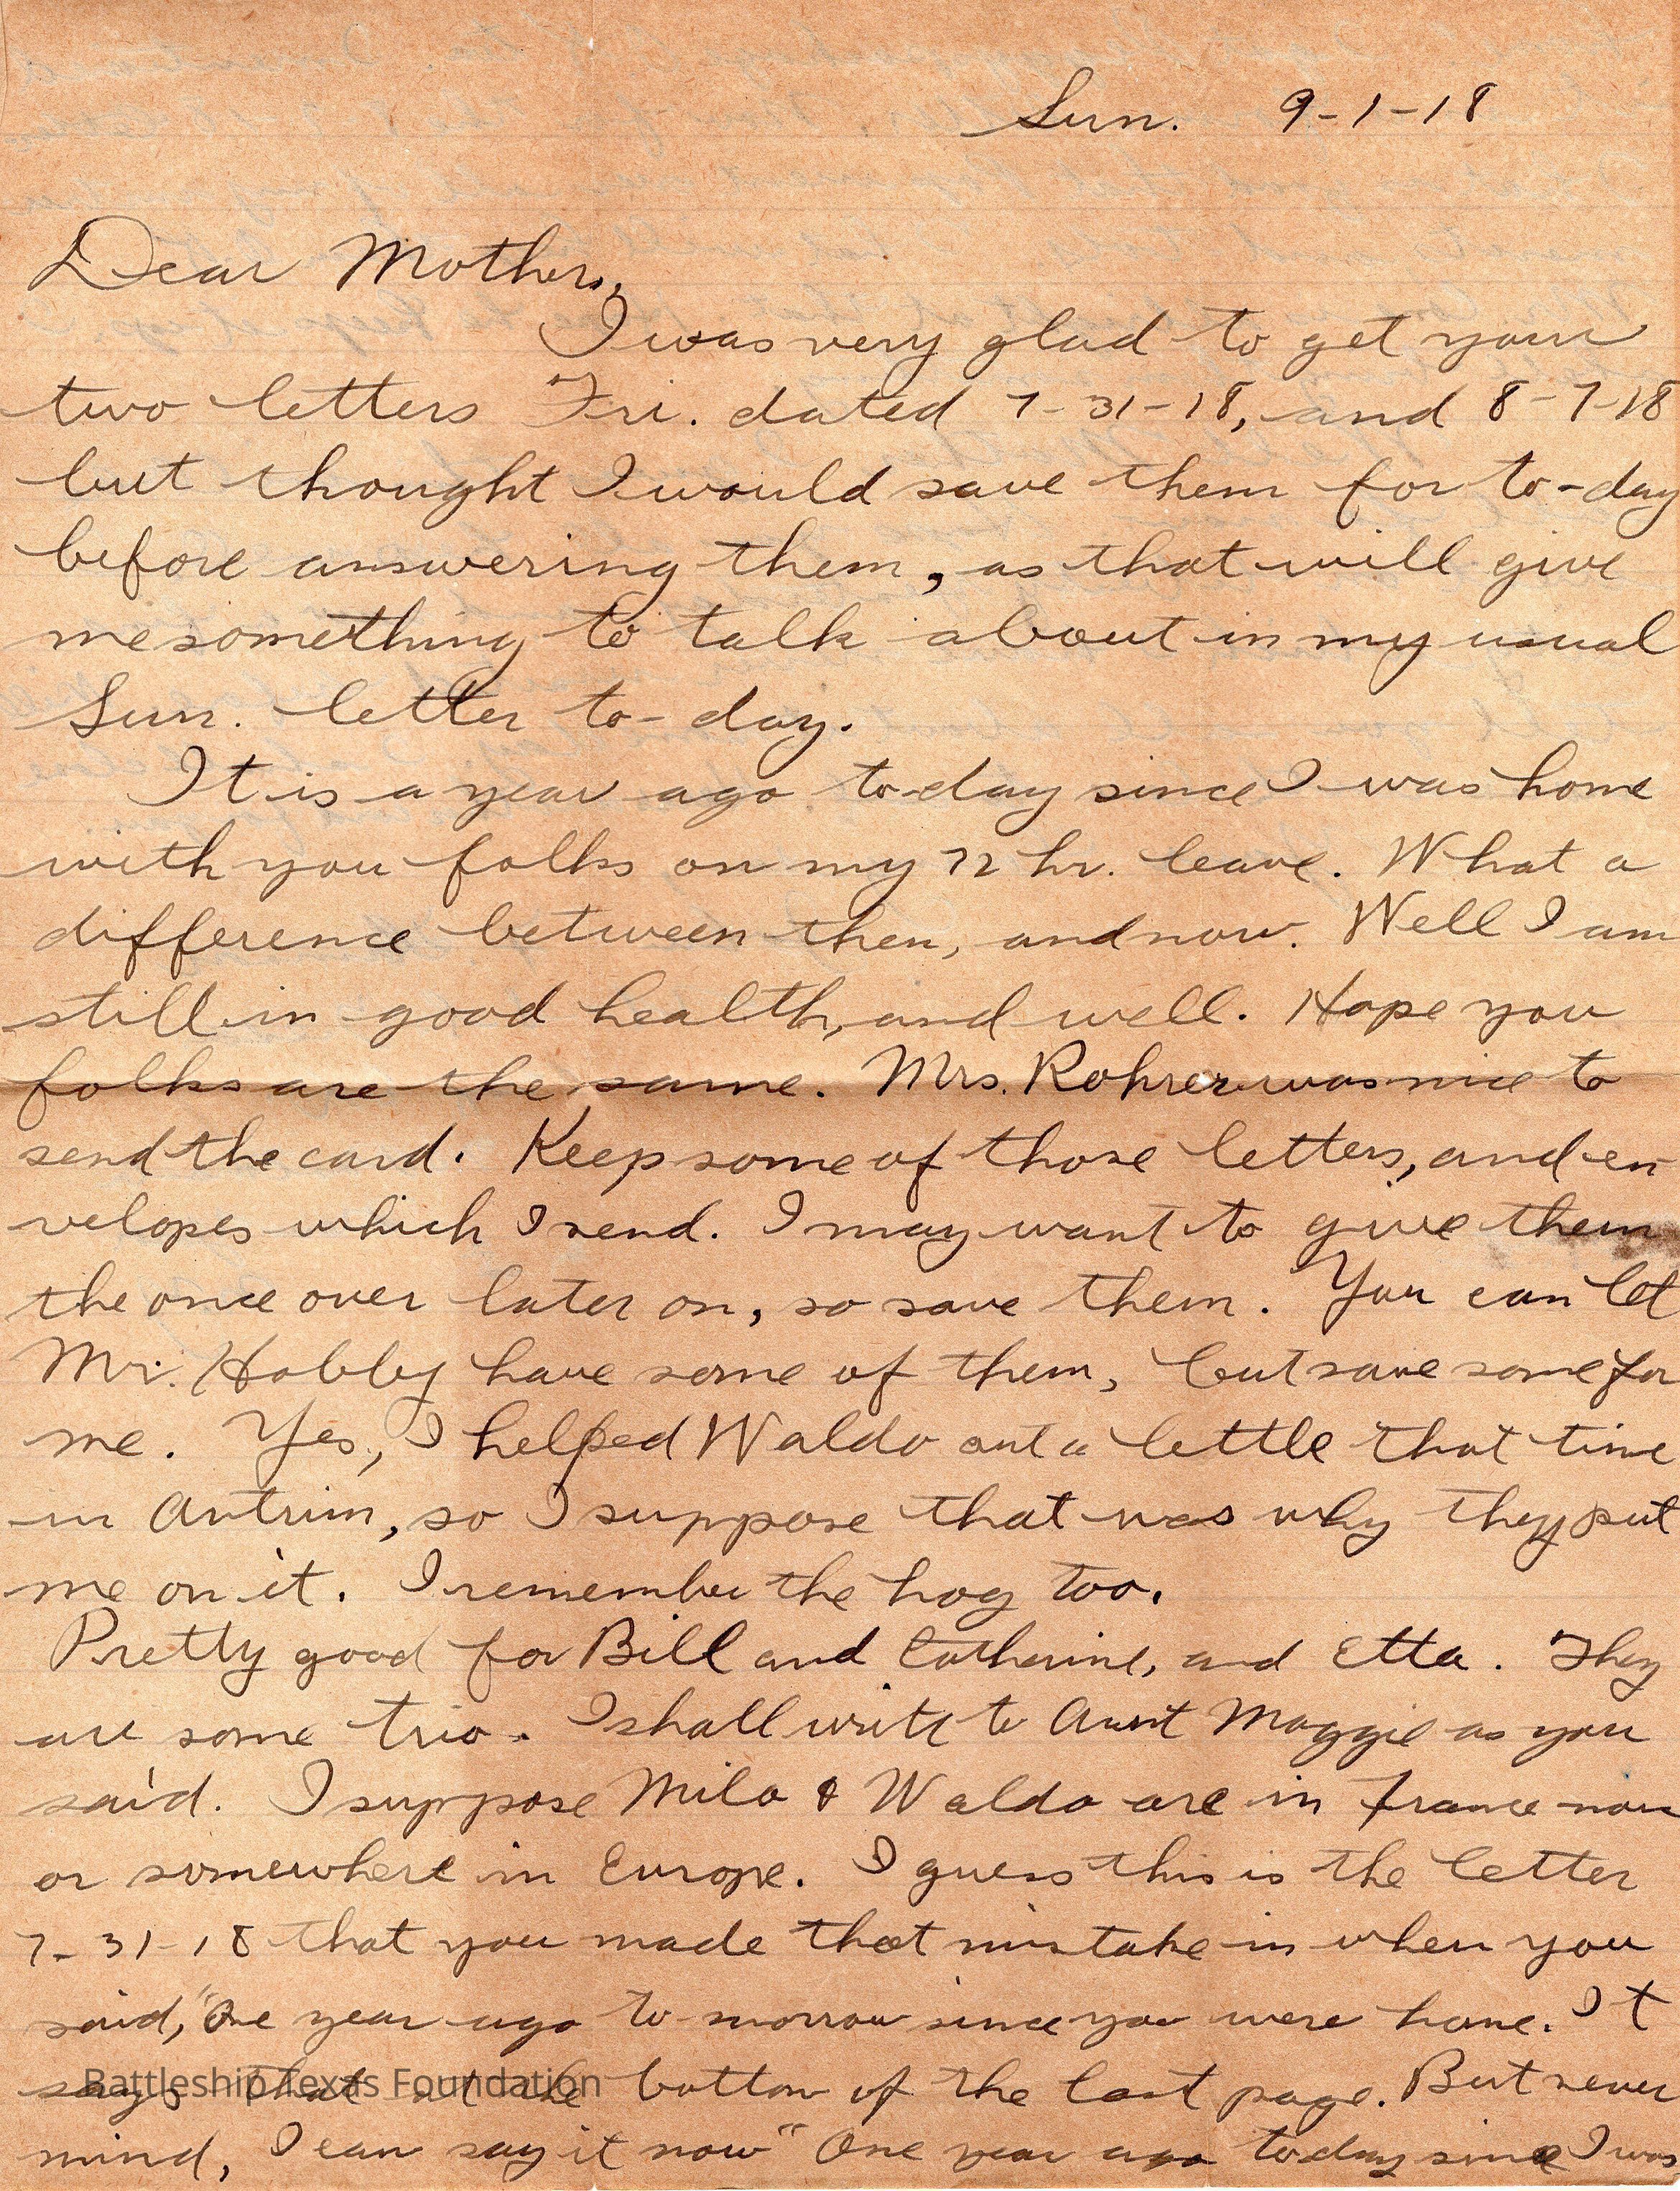 Sun. 9-1-18
Dear Mother,
I was very glad to get your
two letters Fri. dated 7-31-18, and 8-7-18
but thought I would save them for to-day
before answering them, as that will give
me something to talk about in my usual
Sun. letter to-day.
It is a year ago to-day since I was home
with you folks on my 72 hr. leave. What a
difference between then, and now. Well I am
still in good health, and well. Hope you
folks are the same. Mrs. Rohrer was nice to
send the card. Keep some of those letters, and en-
velopes which I send. I may want to give them
the once over later on, so save them. You can let
Mr. Hobby have some of them, but save some for
me. Yes, I helped Waldo out a little that time
in Antrim, so I suppose that was why they put
me on it. I remember the hog too.
Pretty good for Bill and Catherine, and Etta. They
are some trio. I shall write to Aunt Maggie as you
said. I suppose Milo & Waldo are in France now
or somewhere in Europe. I guess this is the letter
7-31-18 that you made that mistake in when you
said, "One year ago to-morrow since you were home. It
says that at the bottom of the last page. But never
mind, I can say it now "One year ago today since I was
Battleship Texas Foundation